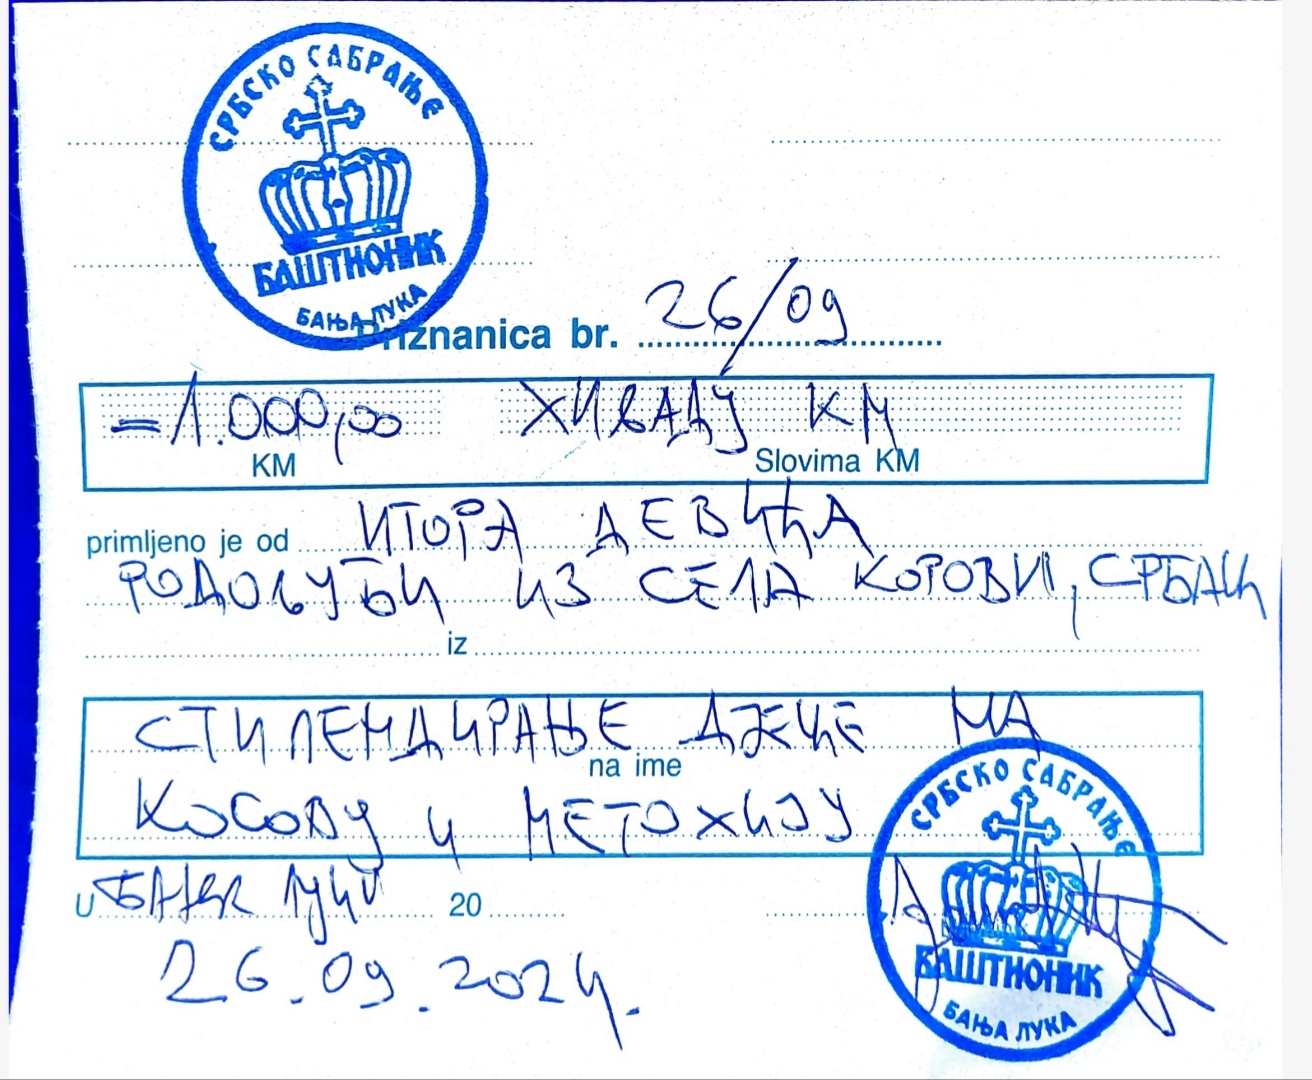 СРБСКО САБРАЊЕ
БАШТИОНИК
БАЊА ЛУКА
Priznanica br. 26/09
=1.000,00 ХИЉАДУ КМ
KM Slovima KM
primljeno je od ИГОРА ДЕВИЋА
РОДОЉУБИ ИЗ СЕЛА КОРОВИ, СРБАЦ
iz
СТИПЕНДИРАЊЕ ДЈЕЦЕ НА
na ime
КОСОВУ И МЕТОХИЈУ
u БАЊА ЛУЦИ 20
26.09.2024.
СРБСКО САБРАЊЕ
БАШТИОНИК
БАЊА ЛУКА